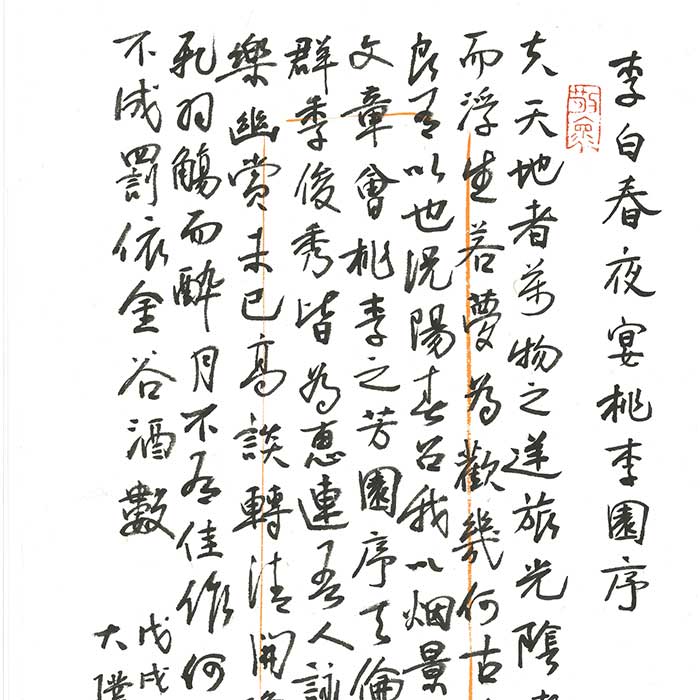 李白春夜宴桃李園序
夫天地者萬物之逆旅光陰
而浮生若夢為歡幾何古
良有以也況陽春召我以烟景
文章會桃李之芳園序天倫
群季俊秀皆為惠連吾人詠
樂幽賞未已高談轉清開
飛羽觴而醉月不有佳作何
不成罰依金谷酒數
戊戌
大